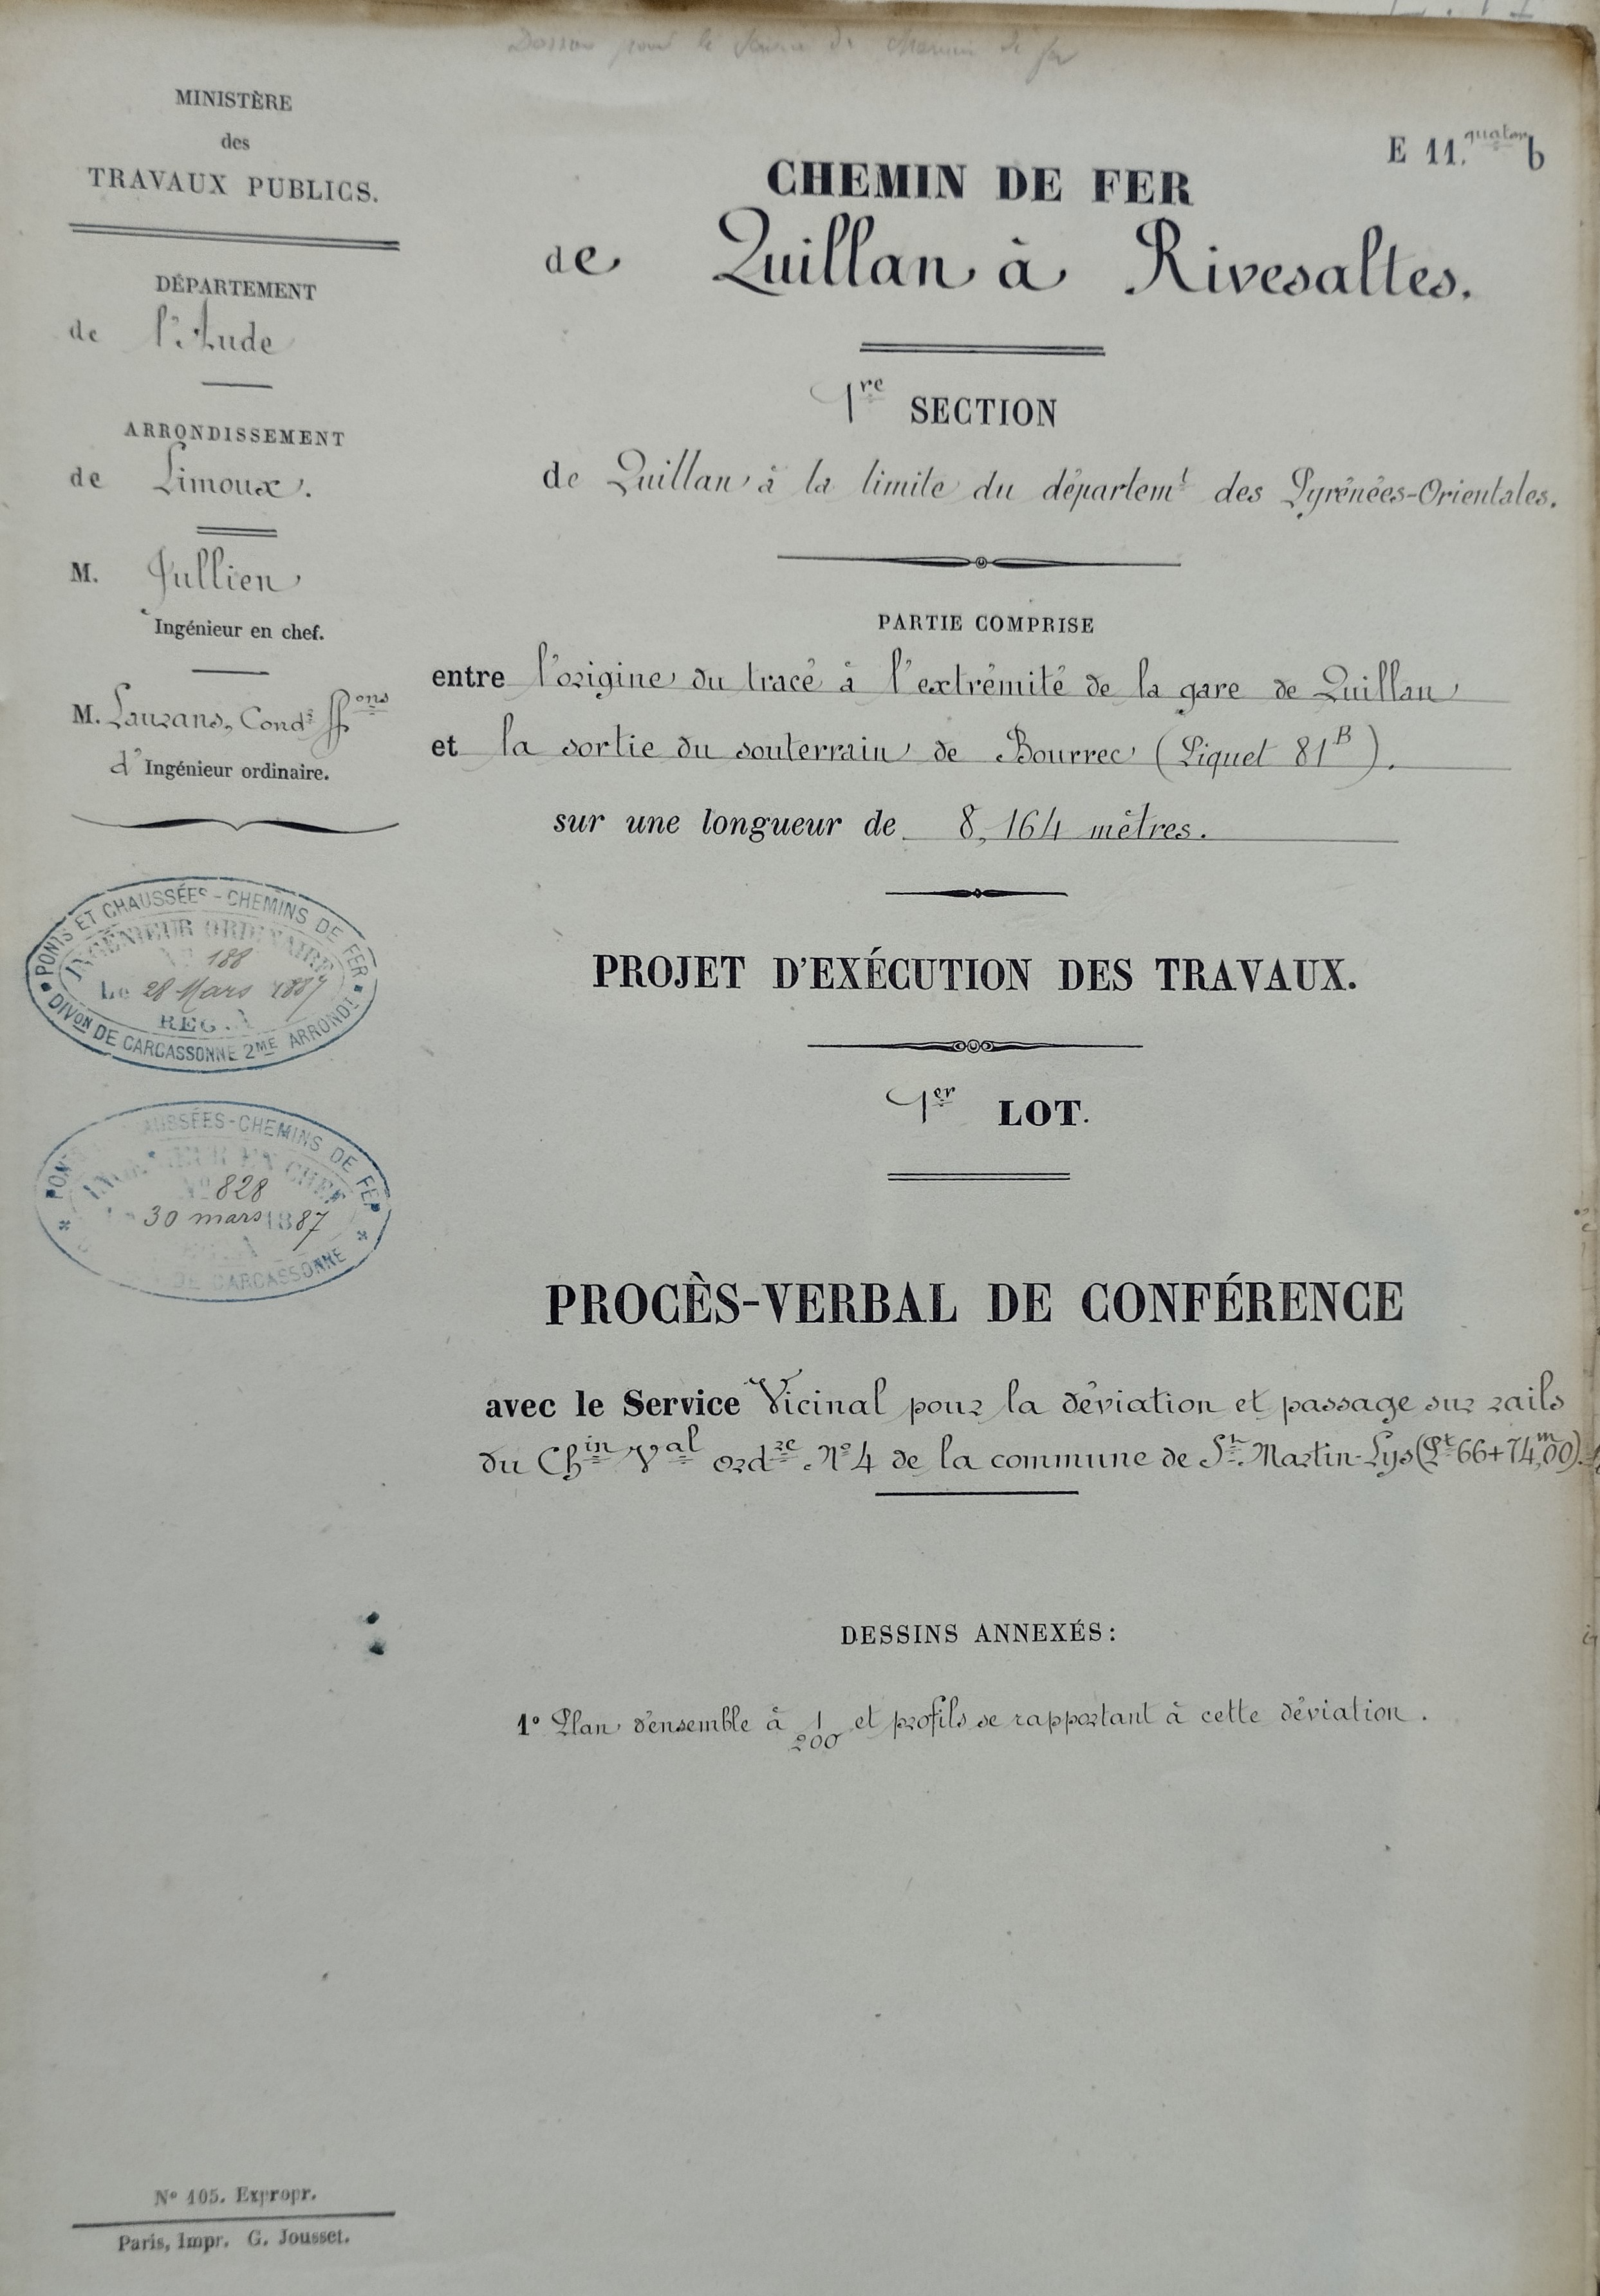 MINISTÈRE
des
TRAVAUX PUBLICS.
DÉPARTEMENT
de l'Aude
ARRONDISSEMENT
de Limoux.
M. Jullien
Ingénieur en chef.
M. Lauzans, Cond.r ff.ons
d'Ingénieur ordinaire.
PONTS ET CHAUSSÉES - CHEMINS DE FER
INGÉNIEUR ORDINAIRE
N° 188
Le 28 Mars 1887
REG. A
DIVON DE CARCASSONNE 2ME ARRONDT
CHAUSSÉES-CHEMINS DE FER
INGÉNIEUR EN CHEF
N° 828
30 mars 1887
DE CARCASSONNE
pour le chemin de fer
E 11. quater b
CHEMIN DE FER
de Quillan à Rivesaltes.
1re SECTION
de Quillan à la limite du départemt des Pyrénées-Orientales.
PARTIE COMPRISE
entre l'origine du tracé à l'extrémité de la gare de Quillan
et la sortie du souterrain de Bourrec (Piquet 81B).
sur une longueur de 8,164 mètres.
PROJET D'EXÉCUTION DES TRAVAUX.
1er LOT.
PROCÈS-VERBAL DE CONFÉRENCE
avec le Service Vicinal pour la déviation et passage sur rails
du Chin Val ordre N° 4 de la commune de St. Martin-Lys (Pt 66+74m,00).
DESSINS ANNEXÉS:
1° Plan d'ensemble à 1/200 et profils se rapportant à cette déviation.
N° 105. Expropr.
Paris, Impr. G. Jousset.